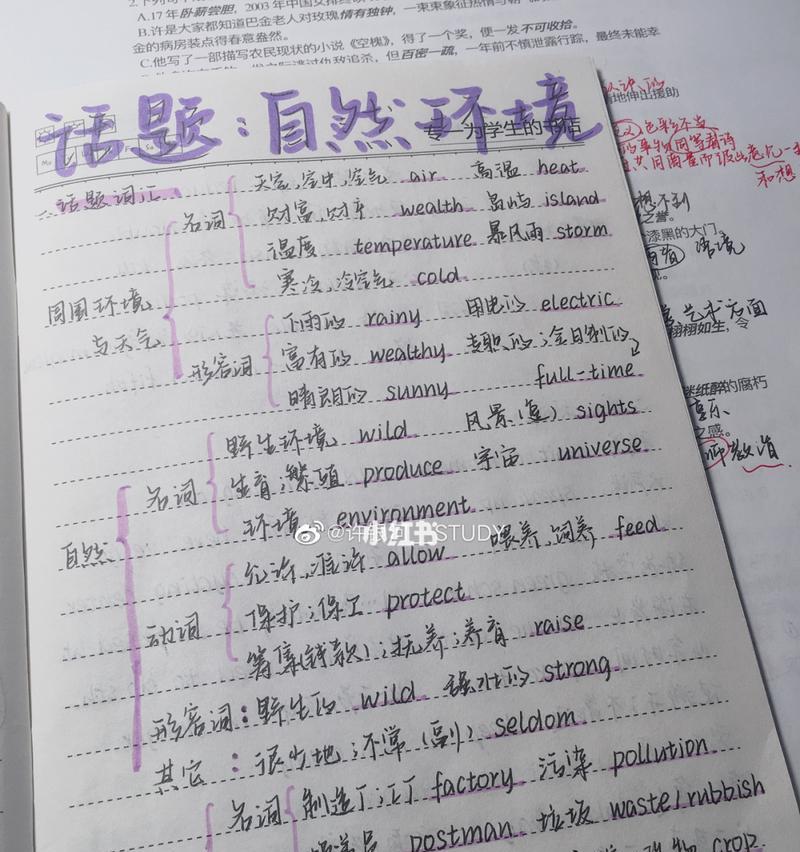 A.17年卧薪尝胆,2003年中国女排终
B.许是大家都知道巴金老人对玫瑰情有独钟,一束束象征热情
金的病房装点得春意盎然。
C.他写了一部描写农民现状的小说《空槐》,得了一个奖,便一发不可收拾。
追杀,但百密一疏,一年前不慎泄露行踪,最终未能幸
话题:自然环境
专一为学生的书店
一、话题词汇
周围环境与天气
名词
天空,空中,空气 air 高温 heat
财富,财产 wealth 岛屿 island
温度 temperature 暴风雨 storm
寒冷,冷空气 cold
形容词
下雨的 rainy 用电的 electric
富有的 wealthy 专职的;全日制的
晴朗的 sunny full-time
自然
名词
野生环境 wild 风景(复) sights
生育;繁殖 produce 宇宙 universe
环境 environment
@许 小红书 STUDY
动词
允许,准许 allow 喂养,饲养 feed
保护;保卫 protect
筹集(钱款);抚养;养育 raise
形容词:野生的 wild 强壮的 strong
其它:很少地;不常(副) seldom
名词
制造厂;工厂 factory 污染 pollution
postman 垃圾 waste/rubbish
crop
地伸出援助
色彩不当
想不到
之誉。
漆黑的大门。
语境
艺术方面
栩栩如生,令
迷纸醉的腐朽
之感。
数消